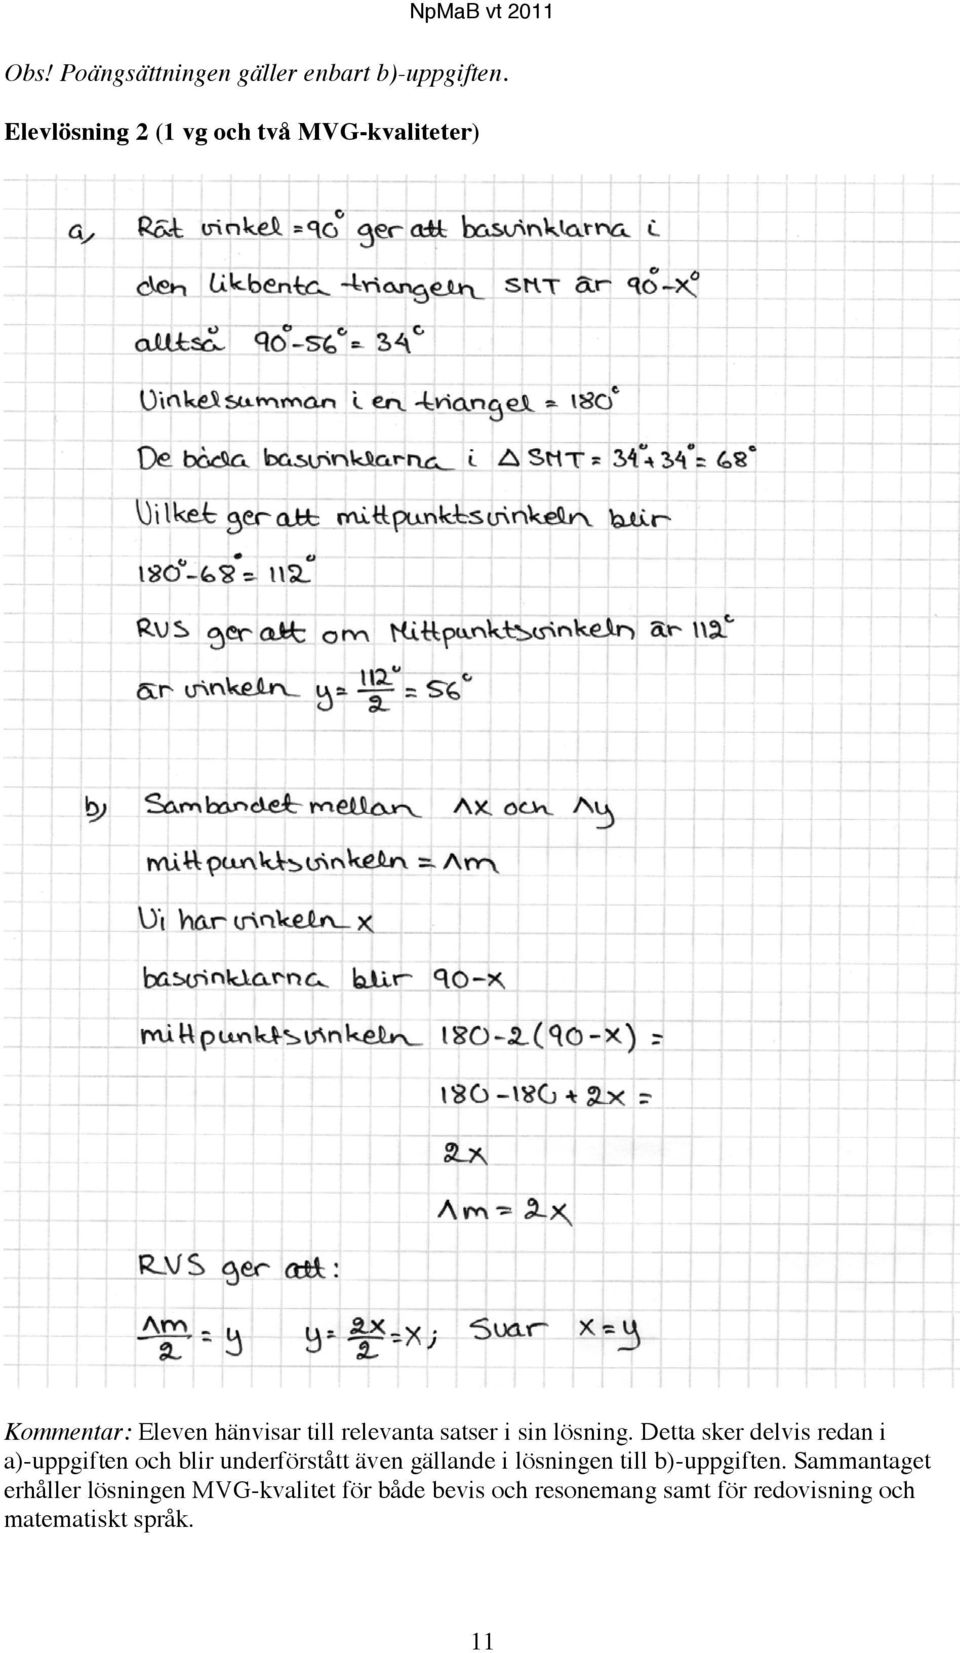 NpMaB vt 2011
Obs! Poängsättningen gäller enbart b)-uppgiften.
Elevlösning 2 (1 vg och två MVG-kvaliteter)
a, Rät vinkel =90° ger att basvinklarna i
den likbenta triangeln SMT är 90°-x°
alltså 90°-56° = 34°
Vinkelsumman i en triangel = 180°
De båda basvinklarna i △ SMT = 34°+34°= 68°
Vilket ger att mittpunktsvinkeln blir
180°-68°= 112°
RVS ger att om Mittpunktsvinkeln är 112°
är vinkeln y= 112°/2 = 56°
b, Sambandet mellan ∧x och ∧y
mittpunktsvinkeln = ∧m
Vi har vinkeln x
basvinklarna blir 90-x
mittpunktsvinkeln 180-2(90-x) =
180-180+2x =
2x
∧m = 2x
RVS ger att:
∧m/2 = y y= 2x/2 =x; Svar x=y
Kommentar: Eleven hänvisar till relevanta satser i sin lösning. Detta sker delvis redan i
a)-uppgiften och blir underförstått även gällande i lösningen till b)-uppgiften. Sammantaget
erhåller lösningen MVG-kvalitet för både bevis och resonemang samt för redovisning och
matematiskt språk.
11